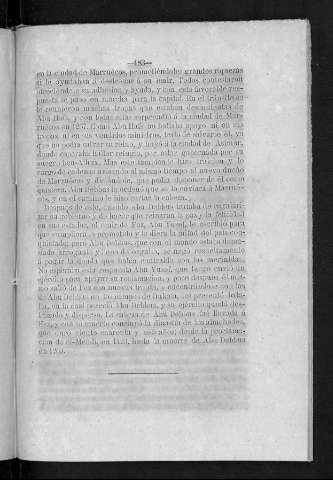 —183—
en la ciudad de Marruécos, prometiéndoles grandes riquezas
si le ayudaban á destronar á su emir. Todos contestaron
ofreciéndole su adhesion y ayuda, y con esta favorable res-
puesta se puso en marcha para la capital. En el tránsito se
le reunieron muchas tropas que estaban descontentas de
Abu Hafs, y con todas ellas sorprendió á la ciudad de Mar-
ruecos en 1267. Como Abu Hafs no hallaba apoyo ni en sus
tropas ni en sus vendidos ministros, trató de salvarse él, ya
que no podia salvar su reino, y huyó á la ciudad de
donde esperaba hallar refugio, por estar gobernada por su
suegro Mas este tambien le hizo traicion y lo
cargó de cadenas avisando al mismo tiempo al nuevo dueño
de Marruécos y diciéndole, que podia disponer de él como
quisiera. Abu Debbus le ordenó que se lo enviara á Marrué-
cos, y en el camino le hizo cortar la cabeza.
Despues de esto, cuando Abu Debbus trataba de regulari-
zar su gobierno y de hacer que reinaran la paz y la felicidad
en sus estados, el emir de Fez, Abu Yusef, le escribió para
que cumpliera lo prometido y le diera la mitad del pais con-
quistado; pero Abu Debbus, que con el mando estaba dema-
siado arrogante y con orgullo, se negó resueltamente
á pagar la deuda que habia contraido con los merinidas.
No esperaba esta respuesta Abu Yusef, que luego envió un
ejército para apoyar su reclamacion, y poco despues él mis-
mo salió de Fez con nuevas tropas, y encontrándose con las
de Abu Debbus en los campos de Dukala, les presentó bata-
lla, en la cual pereció Abu Debbus, y su ejército quedó des-
trozado y disperso. La cabeza de Abu Debbus fué llevada á
Fez, y con su muerte concluyó la dinastía de los almohades,
que duró ciento cuarenta y años, desde la proclama-
cion de el-Mehdi, en 1121, hasta la muerte de Abu Debbus
en 1269.